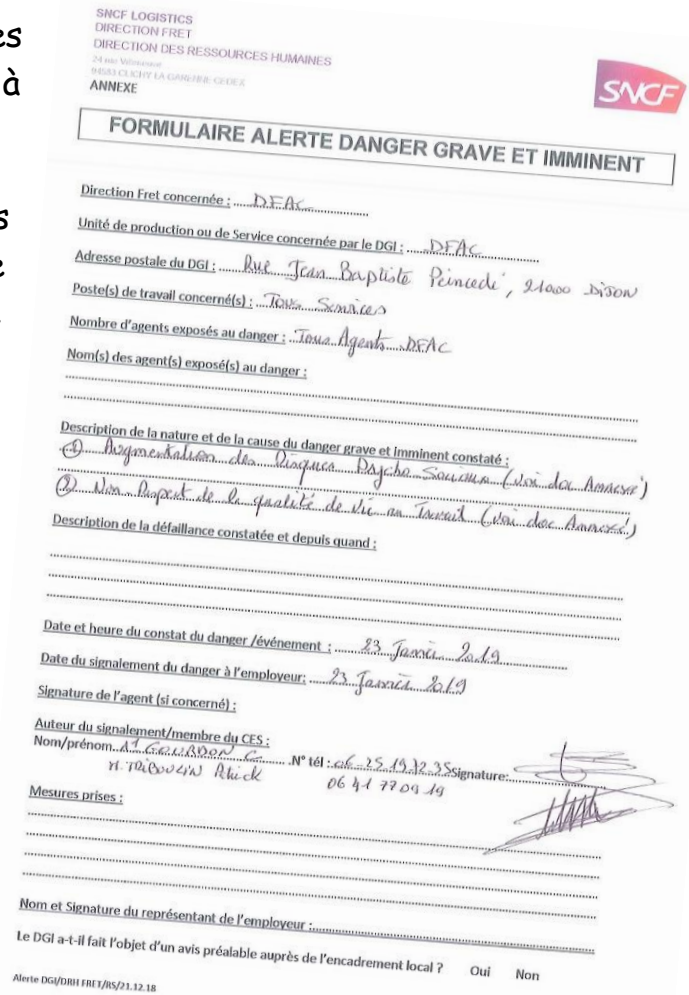 es
à
s
e
SNCF LOGISTICS
DIRECTION FRET
DIRECTION DES RESSOURCES HUMAINES
24 rue Villeneuve
94583 CLICHY LA GARENNE CEDEX
ANNEXE
SNCF
FORMULAIRE ALERTE DANGER GRAVE ET IMMINENT
Direction Fret concernée : DFAC
Unité de production ou de Service concernée par le DGI : DFAC
Adresse postale du DGI : Rue Jean Baptiste Peincedé, 21000 DIJON
Poste(s) de travail concerné(s) : Tous Services
Nombre d'agents exposés au danger : Tous Agents DFAC
Nom(s) des agent(s) exposé(s) au danger :
Description de la nature et de la cause du danger grave et imminent constaté :
① Augmentation des Risques Psycho Sociaux (voir doc Annexé)
② Non Respect de la qualité de Vie au Travail (voir doc Annexé)
Description de la défaillance constatée et depuis quand :
Date et heure du constat du danger /événement : 23 Janvier 2019
Date du signalement du danger à l'employeur: 23 Janvier 2019
Signature de l'agent (si concerné) :
Auteur du signalement/membre du CES :
Nom/prénom GOURDON C. N° tél : 06 25 19 72 35 Signature:
M. TRIBOULIN Patrick 06 41 77 09 19
Mesures prises :
Nom et Signature du représentant de l'employeur :
Le DGI a-t-il fait l'objet d'un avis préalable auprès de l'encadrement local ? Oui Non
Alerte DGI/DRH FRET/RS/21.12.18